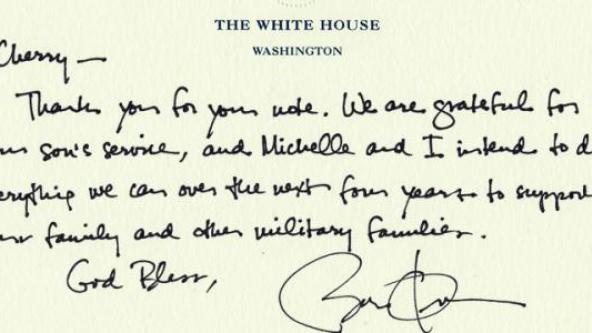 THE WHITE HOUSE
WASHINGTON
Cherry —
Thank you for your note. We are grateful for
ur son's service, and Michelle and I intend to d
erything we can over the next four years to support
ur family and other military families.
God Bless,